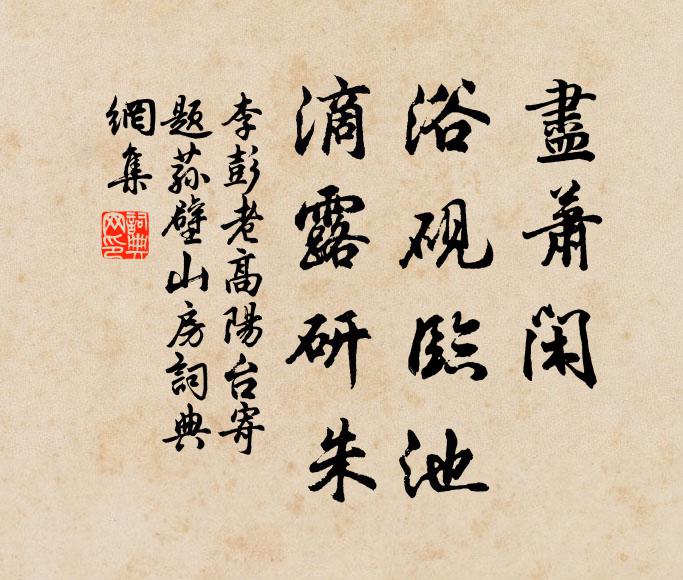 盡蕭閑
浴硯臨池
滴露研朱
李彭老高陽台寄
題荪壁山房詞典
網集
詞典網印